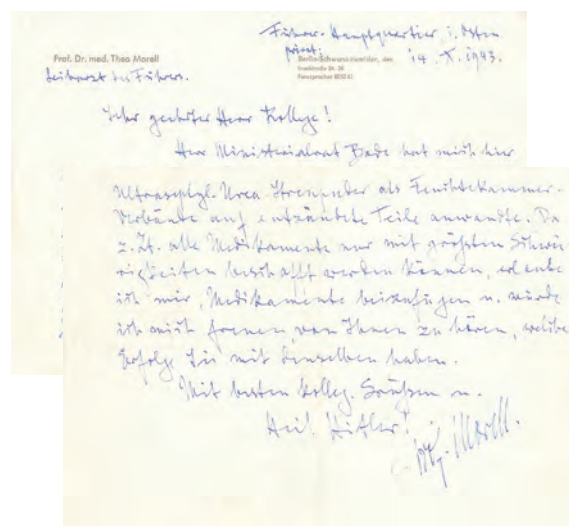 Führer-Hauptquartier, i. Osten
privat:
Prof. Dr. med. Theo Morell
Berlin-Schwanenwerder, den 14. X. 1943.
Inselstraße 24-26
Fernsprecher
Leibarzt des Führers.
Sehr geehrter Herr Kollege!
Herr Ministerialrat Bade hat mich hier
Ultraseptyl-Urea- als Feuchtekammer-
Verbände auf entzündete Teile anwandte. Da
z. Zt. alle Medikamente nur mit größten Schwie
rigkeiten beschafft werden können, erlaube
ich mir, Medikamente beizufügen u. würde
ich mich freuen, von Ihnen zu hören, welche
Erfolge Sie mit denselben haben.
Mit besten kolleg. Grüßen u.
Heil Hitler!
Morell.